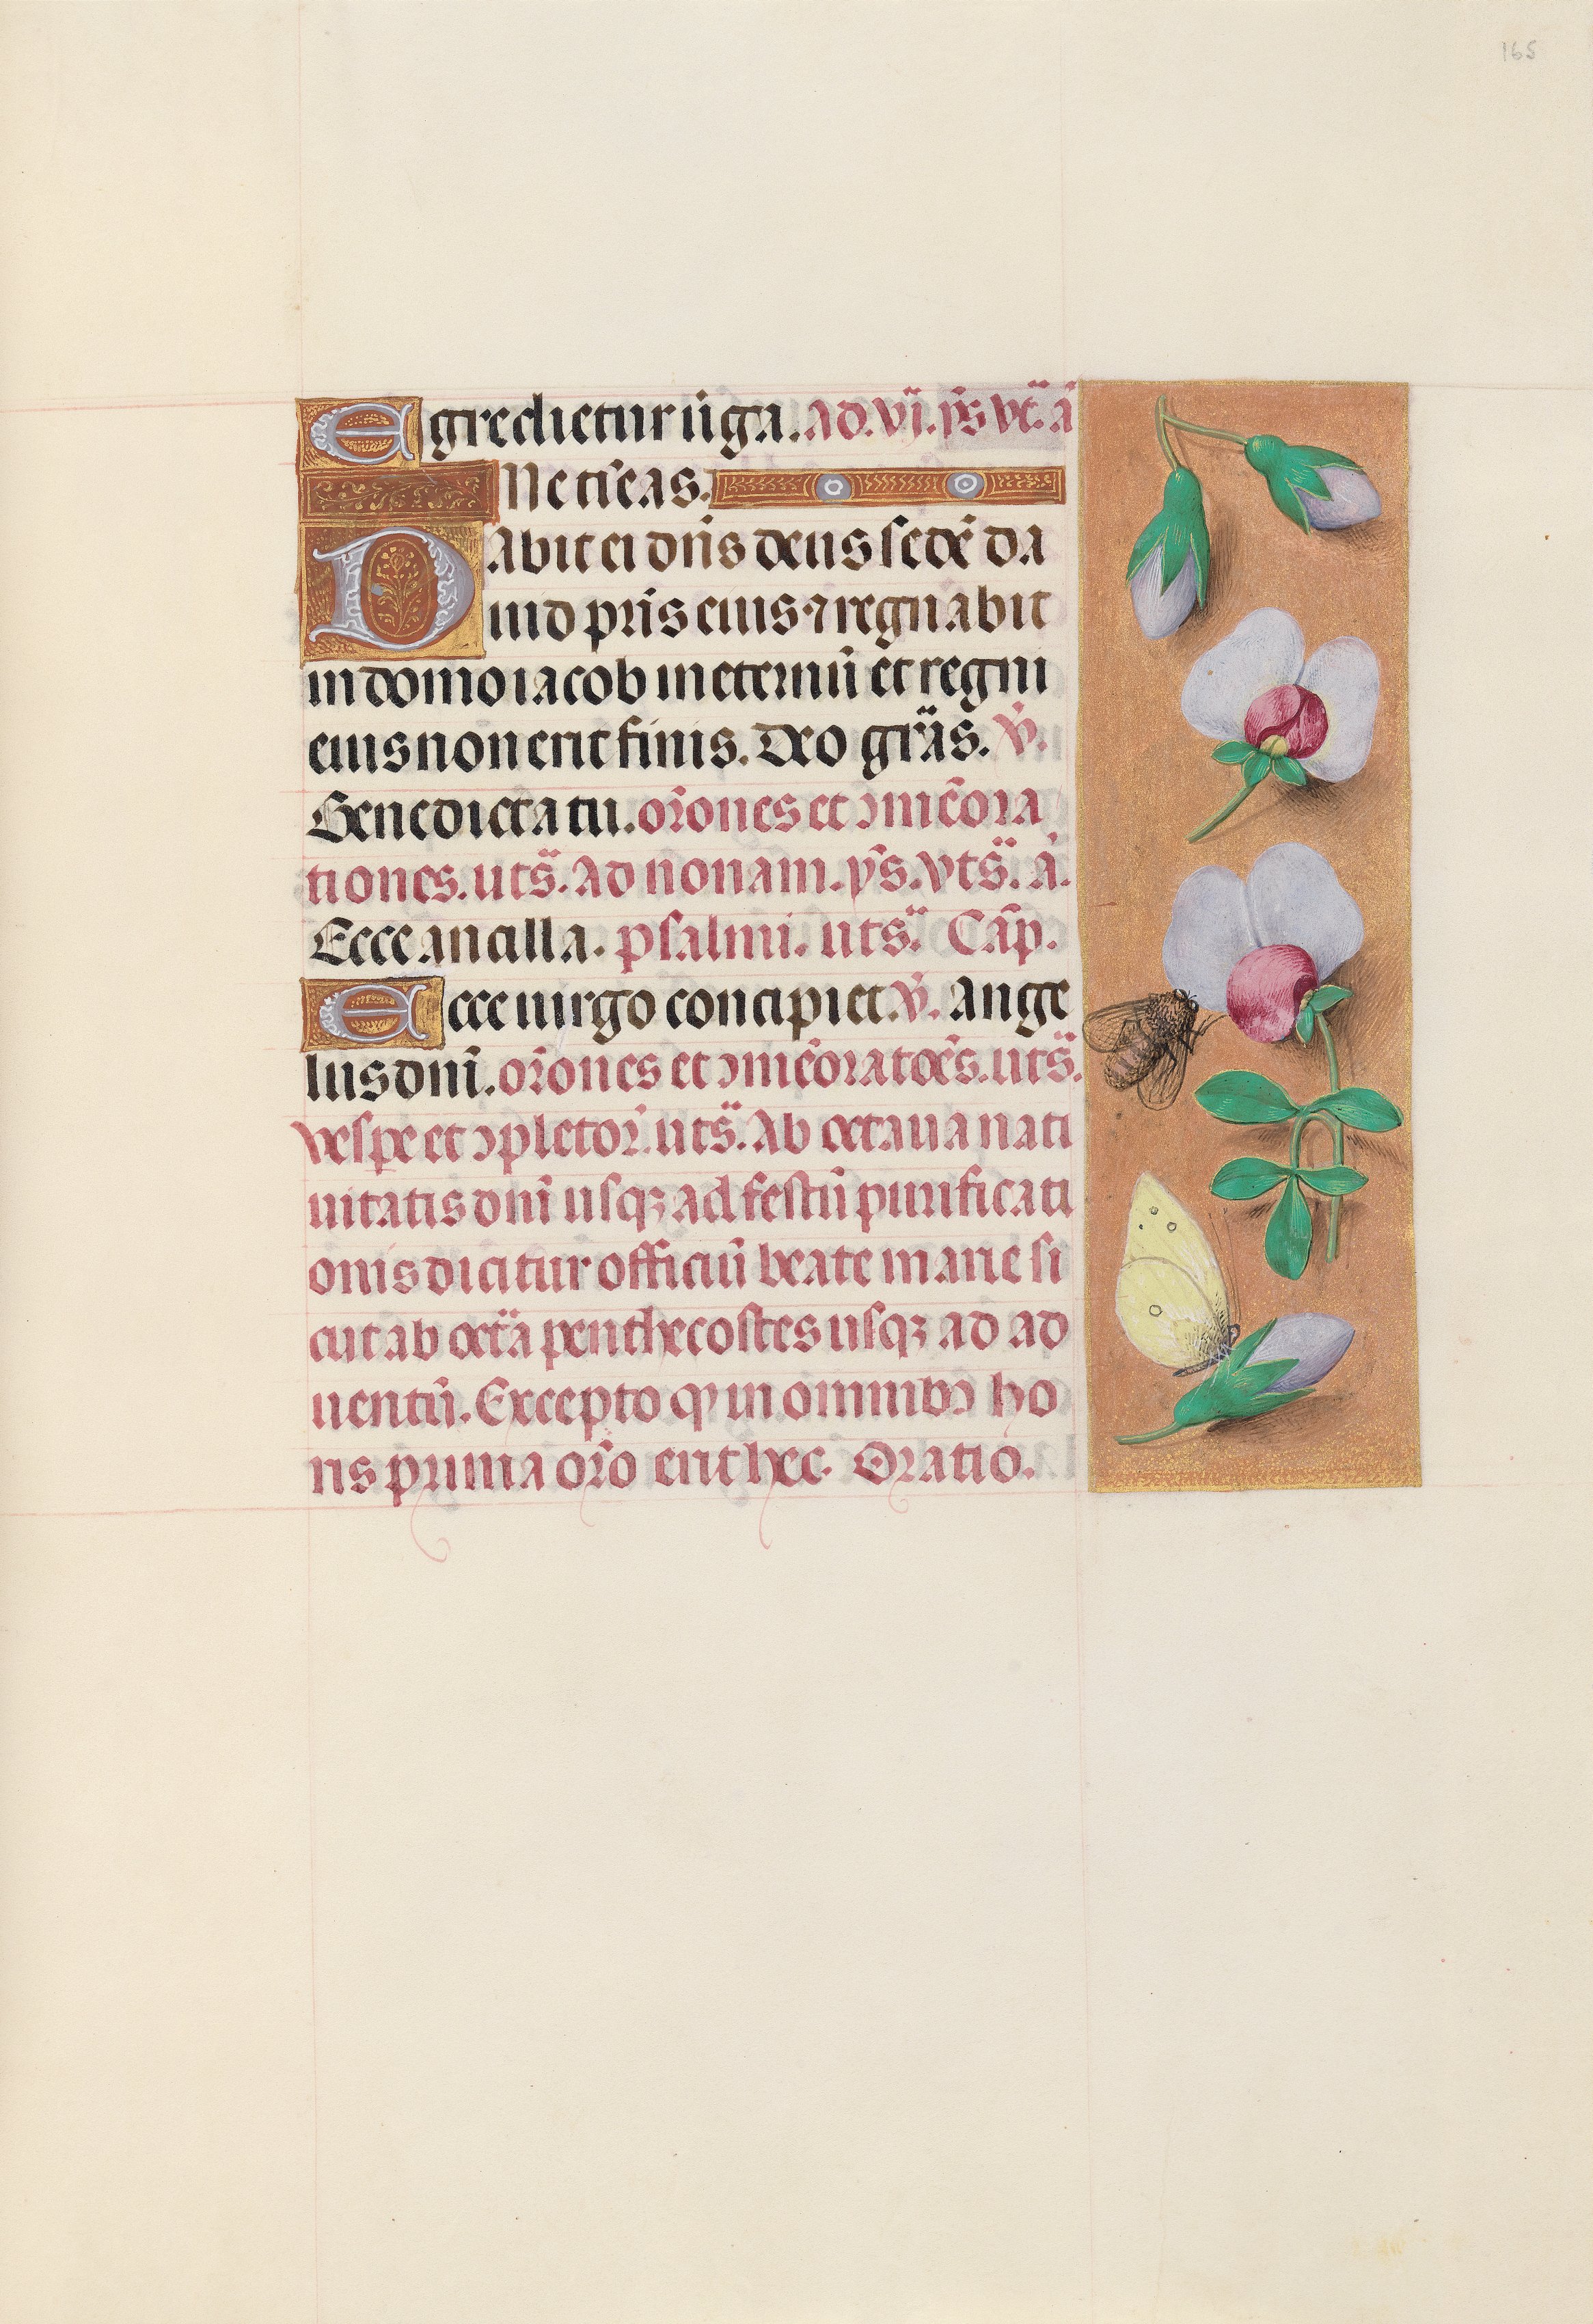 165
Egredietur ũga. ad. vj. p̃s vt. ä
Ne ti͂eas.
Dabit ei dn̄s deus sedē da
uid pr̄is eius ⁊ regnabit
in domo iacob in eternū et regni
eius non erit finis. Deo gr̈as. ℣.
Benedicta tu. or̄ones et ↄmēora
tiones. uts̈. Ad nonam. p̄s. vts̈. ā.
Ecce ancilla. psalmi. uts̈. Cāp.
Ecce uirgo concipiet. ℣. Ange
lus dn̄i. or̄ones et ↄmēoratoēs. uts̈.
vespe et ↄpletor̄. uts̈. Ab octaua nati
uitatis dn̄i usqꝫ ad festū purificati
onis dicitur officiū beate marie si
cut ab ocẗa penthecostes usqꝫ ad ad
uentū. Excepto ꝙ in omnibꝰ ho
ris prima or̄o erit hec. Oratio.